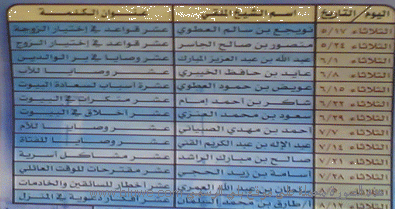 اليوم / التاريخ اسم الشيخ الملقي عنوان الكلمة
الثلاثاء ٥/١٧ نويجع بن سالم العطوي عشر قواعد في إختيار الزوجة
الثلاثاء ٥/٢٤ منصور بن صالح الجابر عشر قواعد في إختيار الزوج
الثلاثاء ٦/١ عبد الله بن عبد العزيز المبارك عشر وصايا في بر الوالدين
الثلاثاء ٦/٨ عايد بن حافظ الخيبري عشر وصايا للأب
الثلاثاء ٦/١٥ عويض بن حمود العطوي عشرة أسباب لسعادة البيوت
الثلاثاء ٦/٢٢ شاكر بن أحمد إمام عشر منكرات في البيوت
الثلاثاء ٦/٢٩ سعود بن محمد العنزي عشر أخلاق في البيوت
الثلاثاء ٧/٧ أحمد بن مهدي الصبياني عشر وصايا للأم
الثلاثاء ٧/١٤ عبد الإله بن عبد الكريم القني عشر وصايا للفتاة
الثلاثاء صالح بن مبارك الراشد عشر مشاكل أسرية
الثلاثاء ٧/٢٨ أسامة بن زيد الحجي عشر مقترحات للوقت العائلي
الثلاثاء بن عبد الله العمري عشر أخطار للسائقين والخادمات
الثلاثاء ٨/١٢ طارق بن محمد عشر أفكار دعوية في المنزل